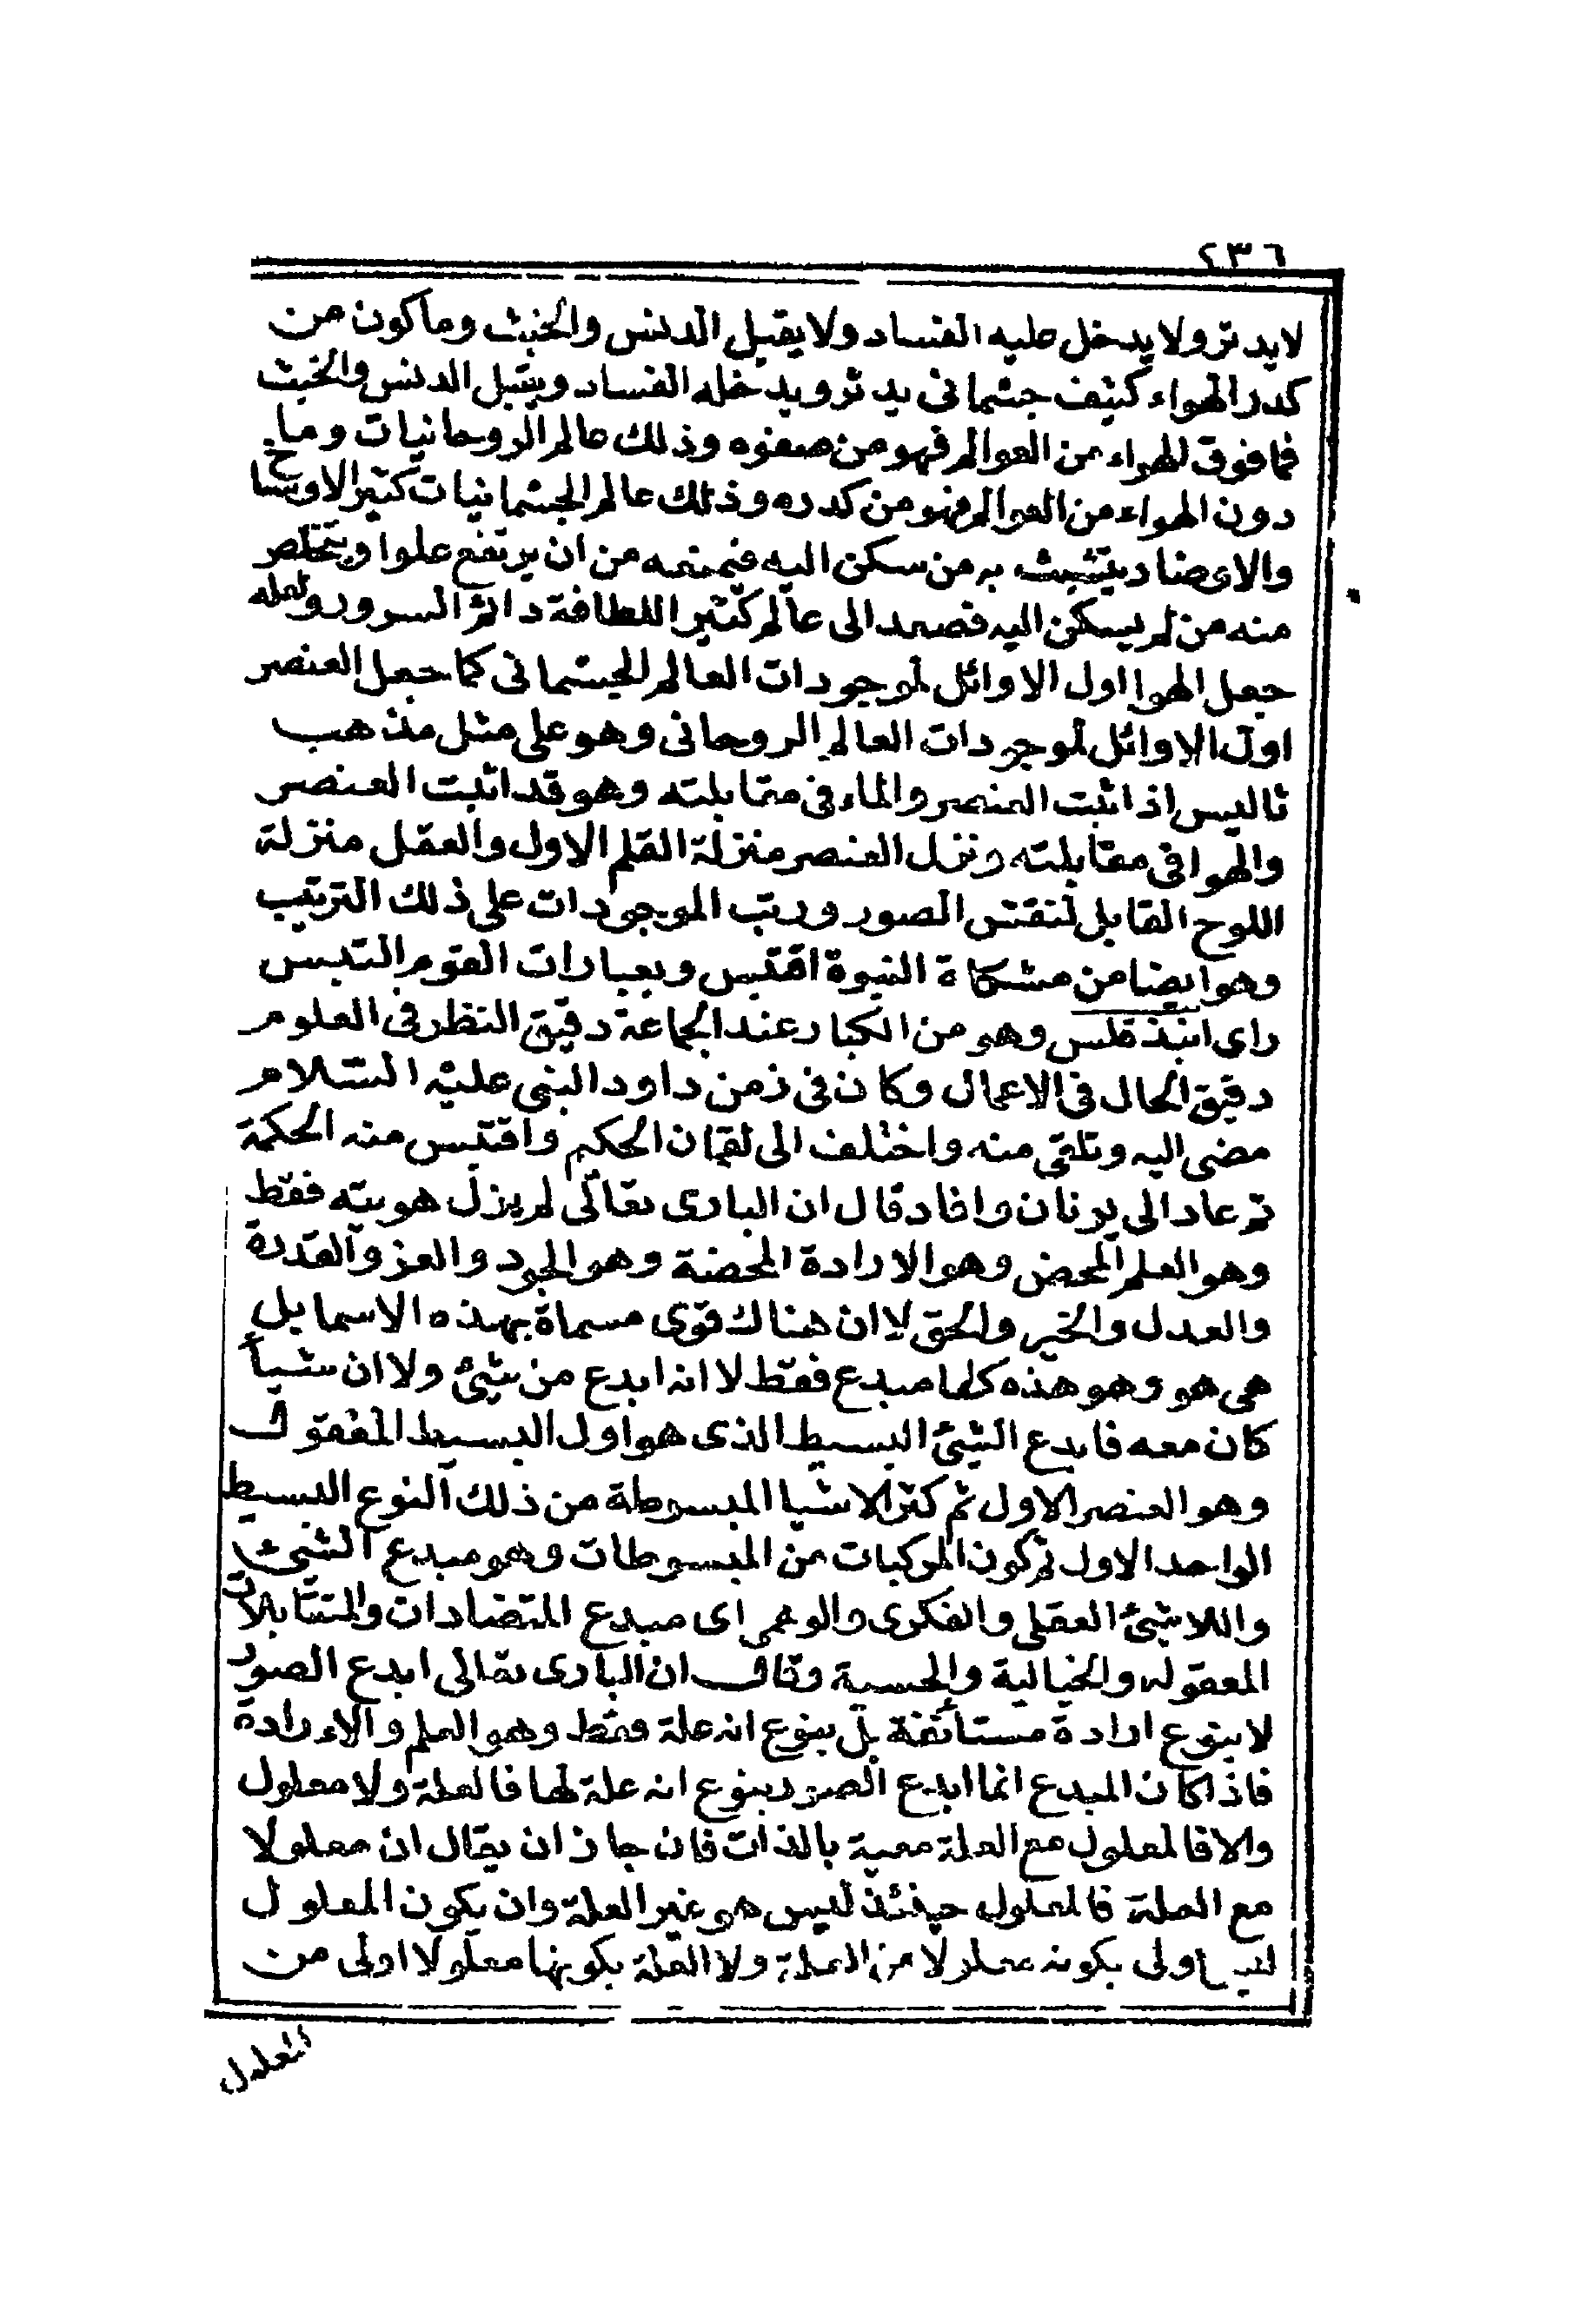 ٢٣٦
لا يدثر ولا يدخل عليه الفساد ولا يقبل الدنس والخبث وما كون من
كدر الهواء كثيف جسمانى يدثر ويدخله الفساد ويقبل الدنس والخبث
فما فوق الهواء من العوالم فهو من صفوه وذلك عالم الروحانيات وما
دون الهواء من العوالم فهو من كدره وذلك عالم الجسمانيات كثير الاوساخ
والاوضار يتشبث به من سكن اليه فيمنعه من ان يرتفع علوا ويتخلص
منه من لم يسكن اليه فصعد الى عالم كثير اللطافة دائم السرور ولعله
جعل الهوا اول الاوائل لموجودات العالم الجسمانى كما جعل العنصر
اول الاوائل لموجودات العالم الروحانى وهو على مثل مذهب
ثاليس اذ اثبت العنصر والماء فى مقابلته وهو قد اثبت العنصر
والهوا فى مقابلته ونزل العنصر منزلة القلم الاول والعقل منزلة
اللوح القابل لنقش الصور ورتب الموجودات على ذلك الترتيب
وهو ايضا من مشكاة النبوة اقتبس وبعبارات القوم التبس
راى انبذقلس وهو من الكبار عند الجماعة دقيق النظر فى العلوم
دقيق الحال فى الاعمال وكان فى زمن داود النبى عليه السلام
مضى اليه وتلقى منه واختلف الى لقمان الحكيم واقتبس منه الحكمة
ثم عاد الى يونان وافاد قال ان البارى تعالى لم يزل هويته فقط
وهو العلم المحض وهو الارادة المحضة وهو الجود والعز والقدرة
والعدل والخير والحق لا ان هناك قوى مسماة بهذه الاسما بل
هى هو وهو هذه كلها مبدع فقط لا انه ابدع من شئ ولا ان شيأ
كان معه فابدع الشئ البسيط الذى هو اول البسيط المعقول
وهو العنصر الاول ثم كثر الاشيا المبسوطة من ذلك النوع البسيط
الواحد الاول ثم كون المركبات من المبسوطات وهو مبدع الشئ
واللاشئ العقلى والفكرى والوهمى اى مبدع المتضادات والمتقابلات
المعقوله والخيالية والحسية وقال ان البارى تعالى ابدع الصور
لا بنوع ارادة مستأنفة بل بنوع انه علة فقط وهو العلم والارادة
فاذا كان المبدع انما ابدع الصور بنوع انه علة لها فالعلة ولا معلول
والا فالمعلول مع العلة معية بالذات فان جاز ان يقال ان معلولا
مع العلة فالمعلول حينئذ ليس هو غير العلة وان يكون المعلول
ليس اولى بكونه معلولا من العلة ولا العلة بكونها معلولا اولى من
المعلول